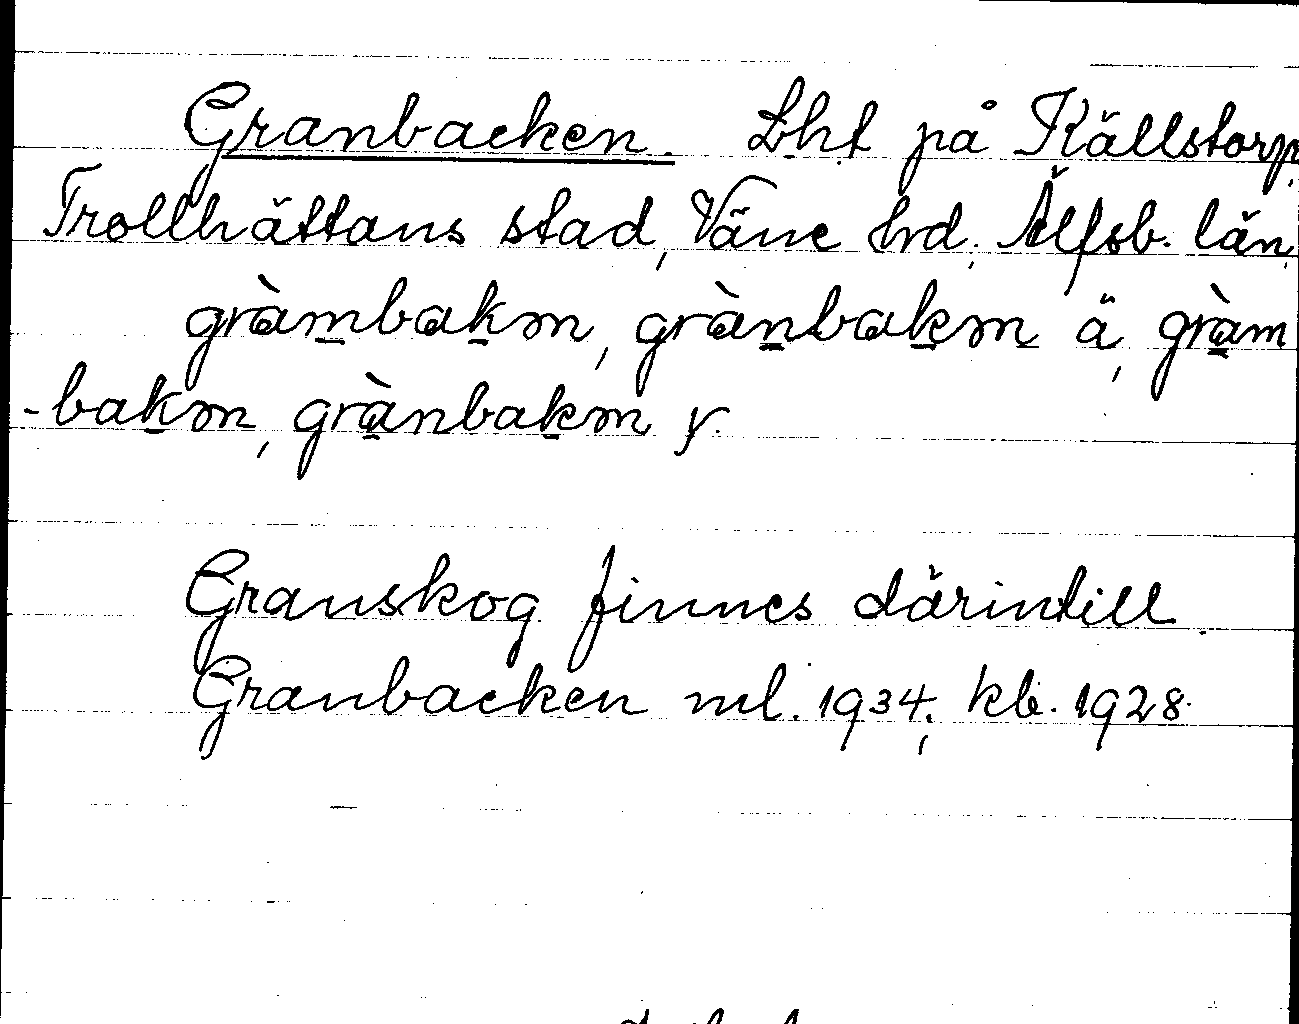 Granbacken. Lht på Källstorp,
Trollhättans stad, Väne hd. Älfsb. län.
gràmbakm, grànbakm ä, gràm
-bakm, grànbakm y.
Granskog finnes därintill.
Granbacken ml. 1934; kb. 1928.